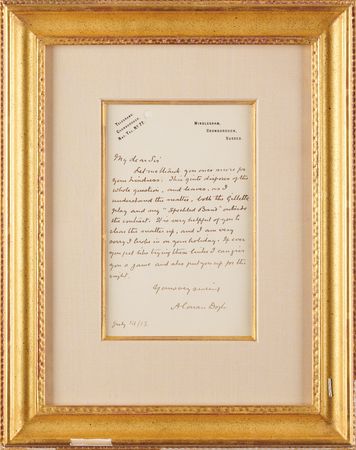 Telegrams,
Crowborough.
Nat. Tel. No 77.
Windlesham,
Crowborough,
Sussex.
My dear Sir
Let me thank you once more for
your kindness. This quite disposes of the
whole question, and leaves, as I
understand the matter, both the Gillette
play and my "Speckled Band" outside
the contract. It is very helpful of you to
clear the matter up, and I am very
sorry I broke in on your holiday. If ever
you feel like trying these links I can give
you a game and also put you up for the
night.
Yours very sincerely
A Conan Doyle
July